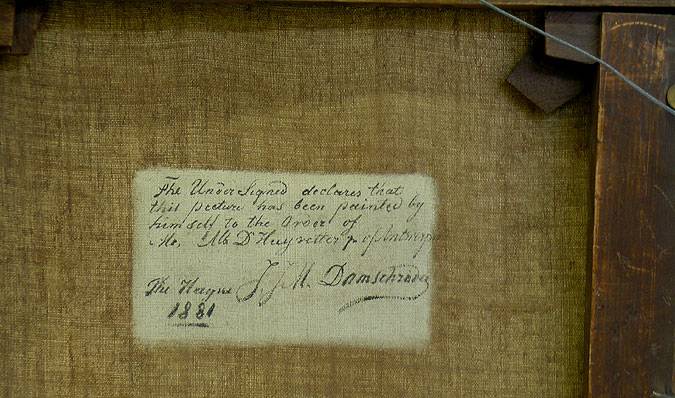 The Undersigned declares that
this picture has been painted by
himself to the Order of
Mr. D'Huyvetter jr of Antwerp
The Hague J. J. M. Damschroder
1881